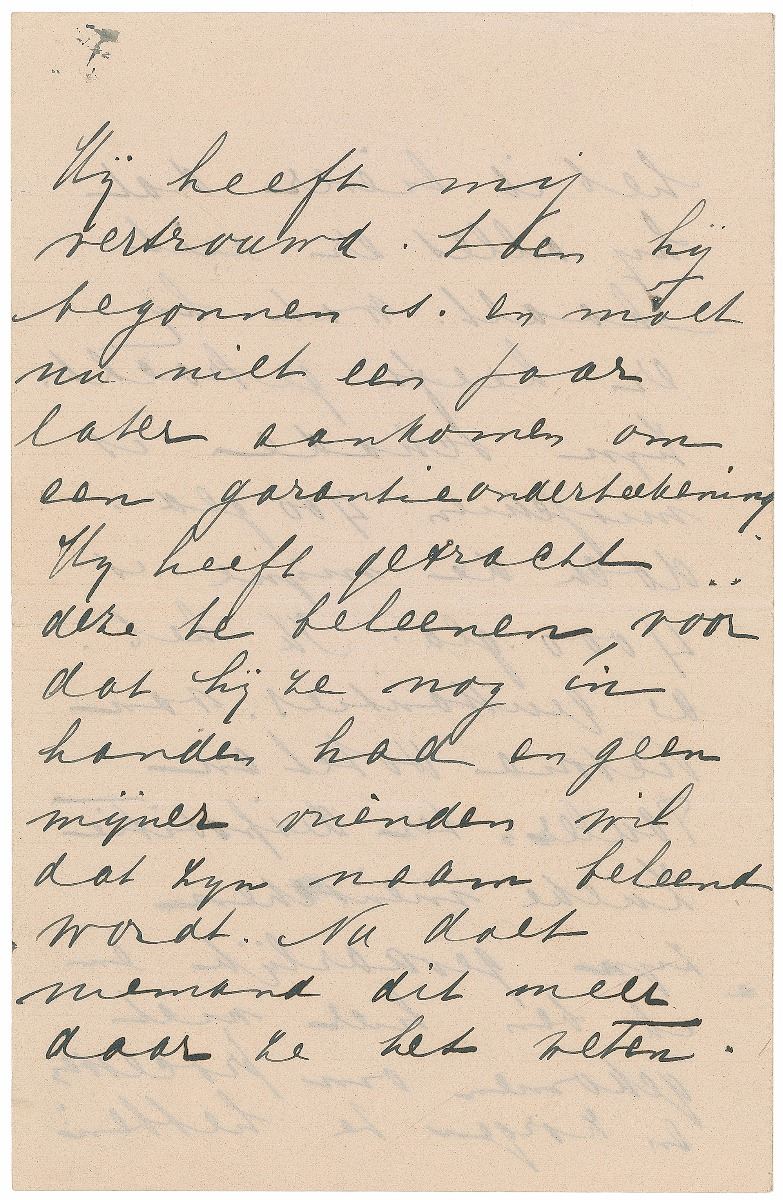 Hij heeft mij
vertrouwd. toen hij
begonnen is. en moet
nu niet een jaar
later aankomen om
een garantieonderteekening
Hy heeft getracht
deze te beleenen, vóór
dat hij ze nog in
handen had en geen
mijner vrienden wil
dat zyn naam beleend
wordt. Nu doet
niemand dit meer
daar ze het weten.